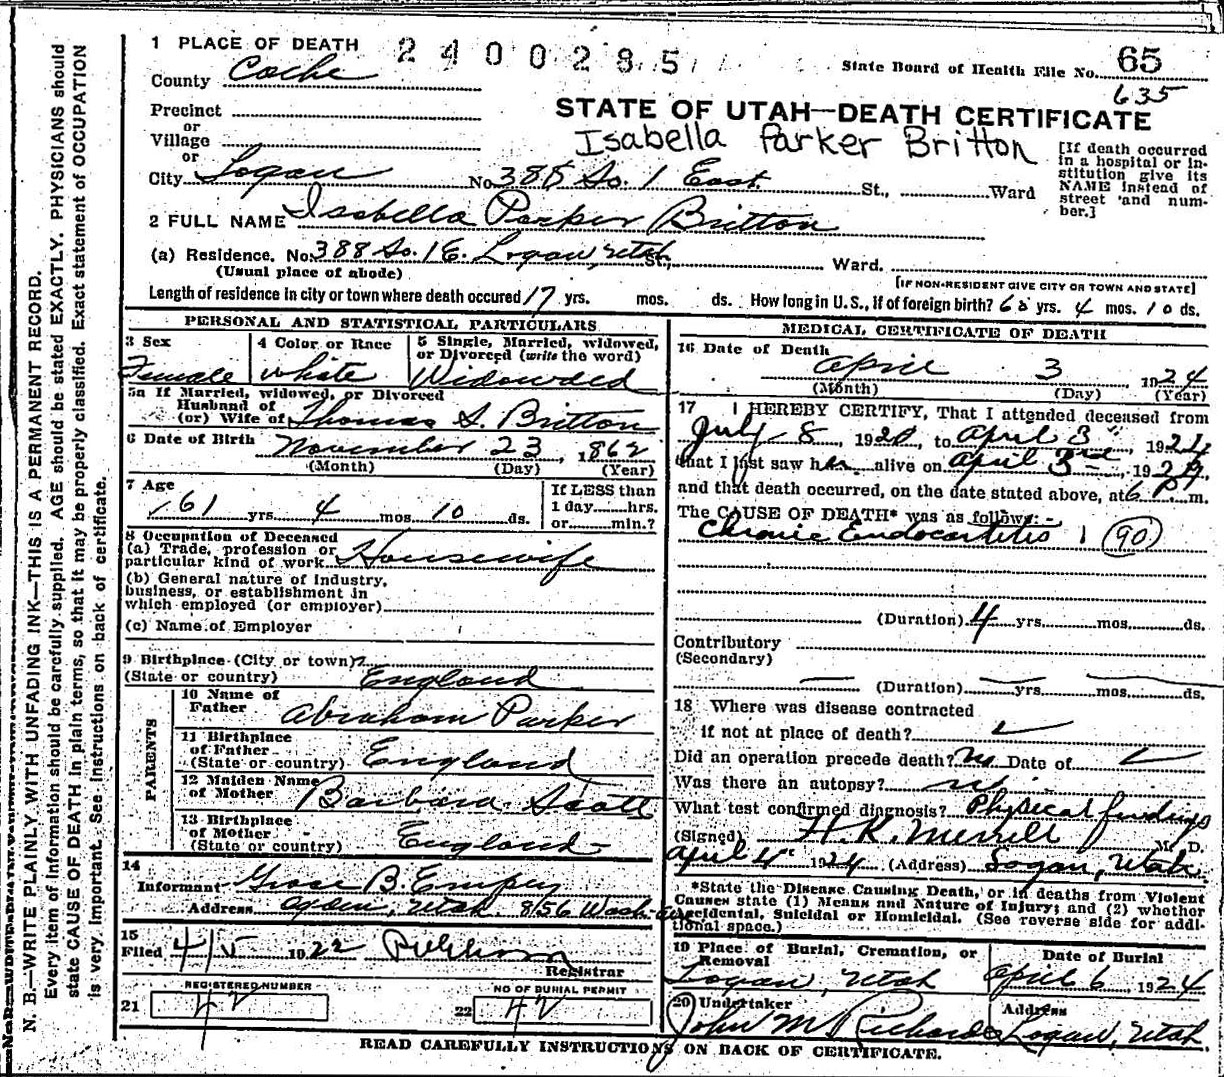 N. B.—WRITE PLAINLY WITH UNFADING INK—THIS IS A PERMANENT RECORD.
Every item of information should be carefully supplied. AGE should be stated EXACTLY. PHYSICIANS should
state CAUSE OF DEATH in plain terms, so that it may be properly classified. Exact statement of OCCUPATION
is very important. See instructions on back of certificate.
1 PLACE OF DEATH 2400285
State Board of Health File No. 65
635
County Cache
STATE OF UTAH—DEATH CERTIFICATE
Isabella Parker Britton
Precinct
or
Village
or
City Logan No. 388 So. 1 East St., Ward
[If death occurred
in a hospital or in-
stitution give its
NAME instead of
street and num-
ber.]
2 FULL NAME Isabella Parker Britton
(a) Residence. No. 388 So. 1 E. Logan, Utah St., Ward.
(Usual place of abode) [IF NON-RESIDENT GIVE CITY OR TOWN AND STATE]
Length of residence in city or town where death occured 17 yrs. mos. ds. How long in U.S., if of foreign birth? yrs. 4 mos. 10 ds.
PERSONAL AND STATISTICAL PARTICULARS
3 Sex 4 Color or Race 5 Single, Married, widowed,
or Divorced (write the word)
Female white Widowded
5a If Married, widowed, or Divorced
Husband of
(or) Wife of Thomas S. Britton
6 Date of Birth November 23, 1862
(Month) (Day) (Year)
7 Age
61 yrs. 4 mos. 10 ds.
If LESS than
1 day......hrs.
or......min.?
8 Occupation of Deceased
(a) Trade, profession or
particular kind of work Housewife
(b) General nature of Industry,
business, or establishment in
which employed (or employer)
(c) Name of Employer
9 Birthplace (City or town)
(State or country) England
PARENTS
10 Name of
Father Abraham Parker
11 Birthplace
of Father
(State or country) England
12 Maiden Name
of Mother Barbara Scott
13 Birthplace
of Mother
(State or country) England
14
Informant Grace B. Empey
Address Ogden, Utah. Wash.
15
Filed 4/5 1922
Registrar
REGISTERED NUMBER
21 42
NO OF BURIAL PERMIT
22 42
MEDICAL CERTIFICATE OF DEATH
16 Date of Death
April 3 1924
(Month) (Day) (Year)
17 I HEREBY CERTIFY, That I attended deceased from
July 8, 1920, to April 3", 1924
that I last saw her alive on April 3rd, 1924
and that death occurred, on the date stated above, at 6 P.m.
The CAUSE OF DEATH* was as follows:
Chronic Endocartitis 1 (90)
(Duration) 4 yrs. mos. ds.
Contributory
(Secondary)
(Duration) yrs. mos. ds.
18 Where was disease contracted
if not at place of death?
Did an operation precede death? No Date of
Was there an autopsy? no
What test confirmed diagnosis? Physical findings
(Signed) H. K. Merrill M. D.
April 4" 1924 (Address) Logan, Utah.
*State the Disease Causing Death, or in deaths from Violent
Causes state (1) Means and Nature of Injury; and (2) whether
Accidental, Suicidal or Homicidal. (See reverse side for addi-
tional space.)
19 Place of Burial, Cremation, or
Removal
Logan, Utah
Date of Burial
April 6, 1924
20 Undertaker
John M. Richards
Address
Logan, Utah
READ CAREFULLY INSTRUCTIONS ON BACK OF CERTIFICATE.